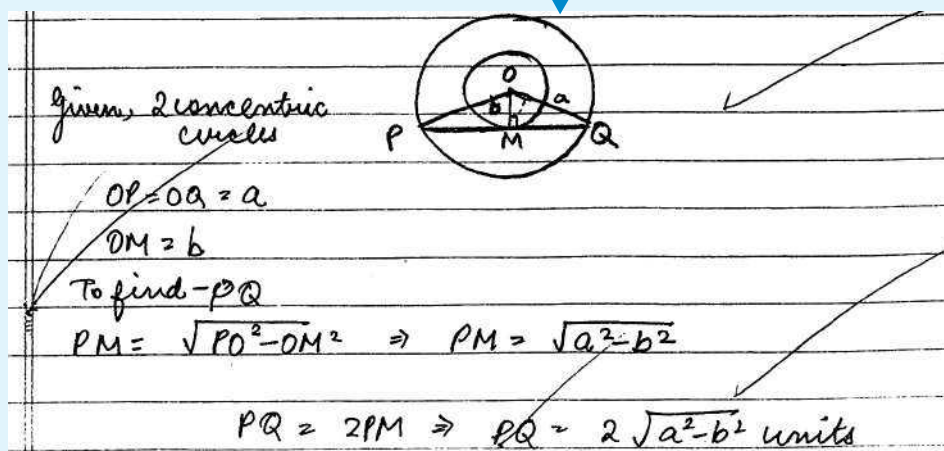 O
b
a
P
M
Q
Given, 2 concentric
circles
OP = OQ = a
OM = b
To find - PQ
PM = √PO² - OM² ⇒ PM = √a² - b²
PQ = 2PM ⇒ PQ = 2 √a² - b² units